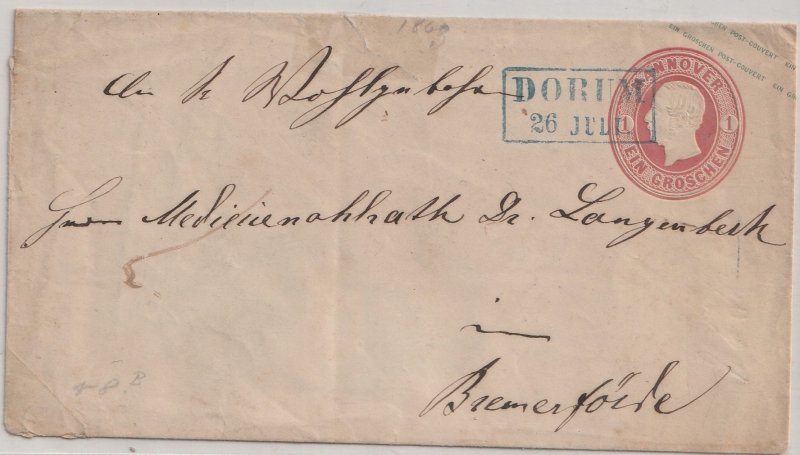 1860
EIN GROSCHEN POST-COUVERT EIN
EIN GROSCHEN POST-COUVERT EIN GR
HANNOVER
1 1
EIN GROSCHEN
DORUM
26 JULI
An Wohlgeboren
Herrn Medicienahlrath Dr. Langenbeck
in
Bremerförde